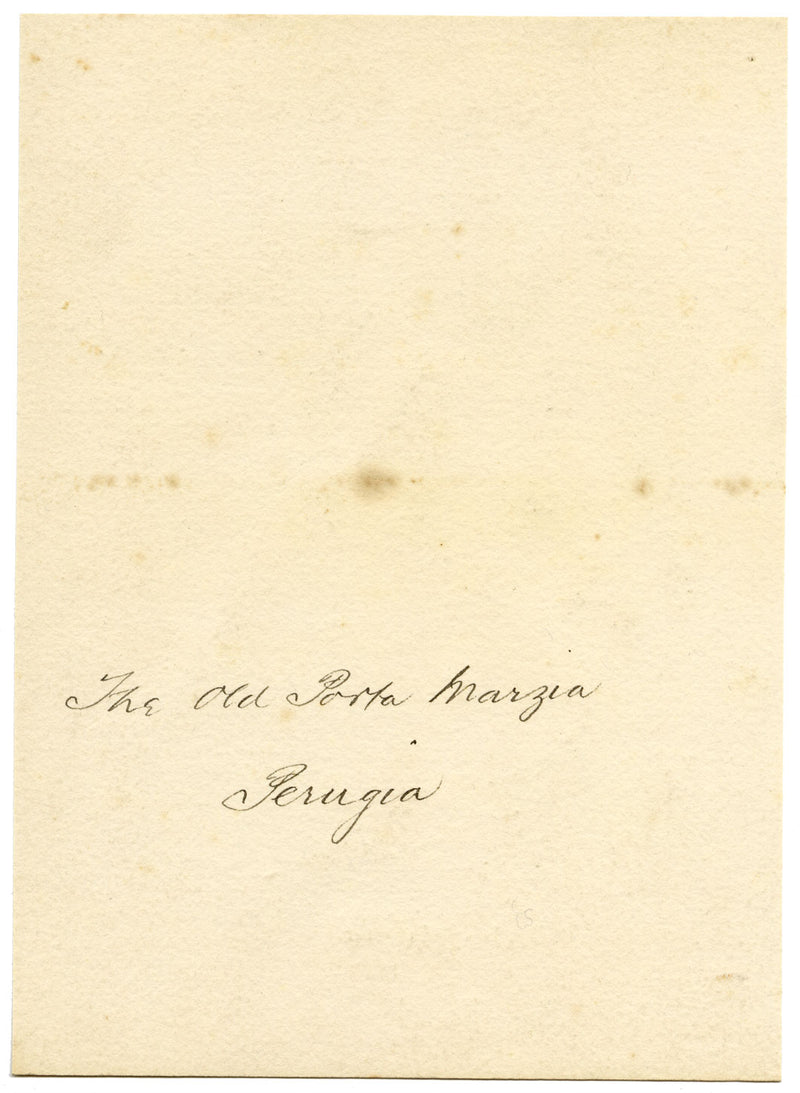 The Old Porta Marzia
Perugia